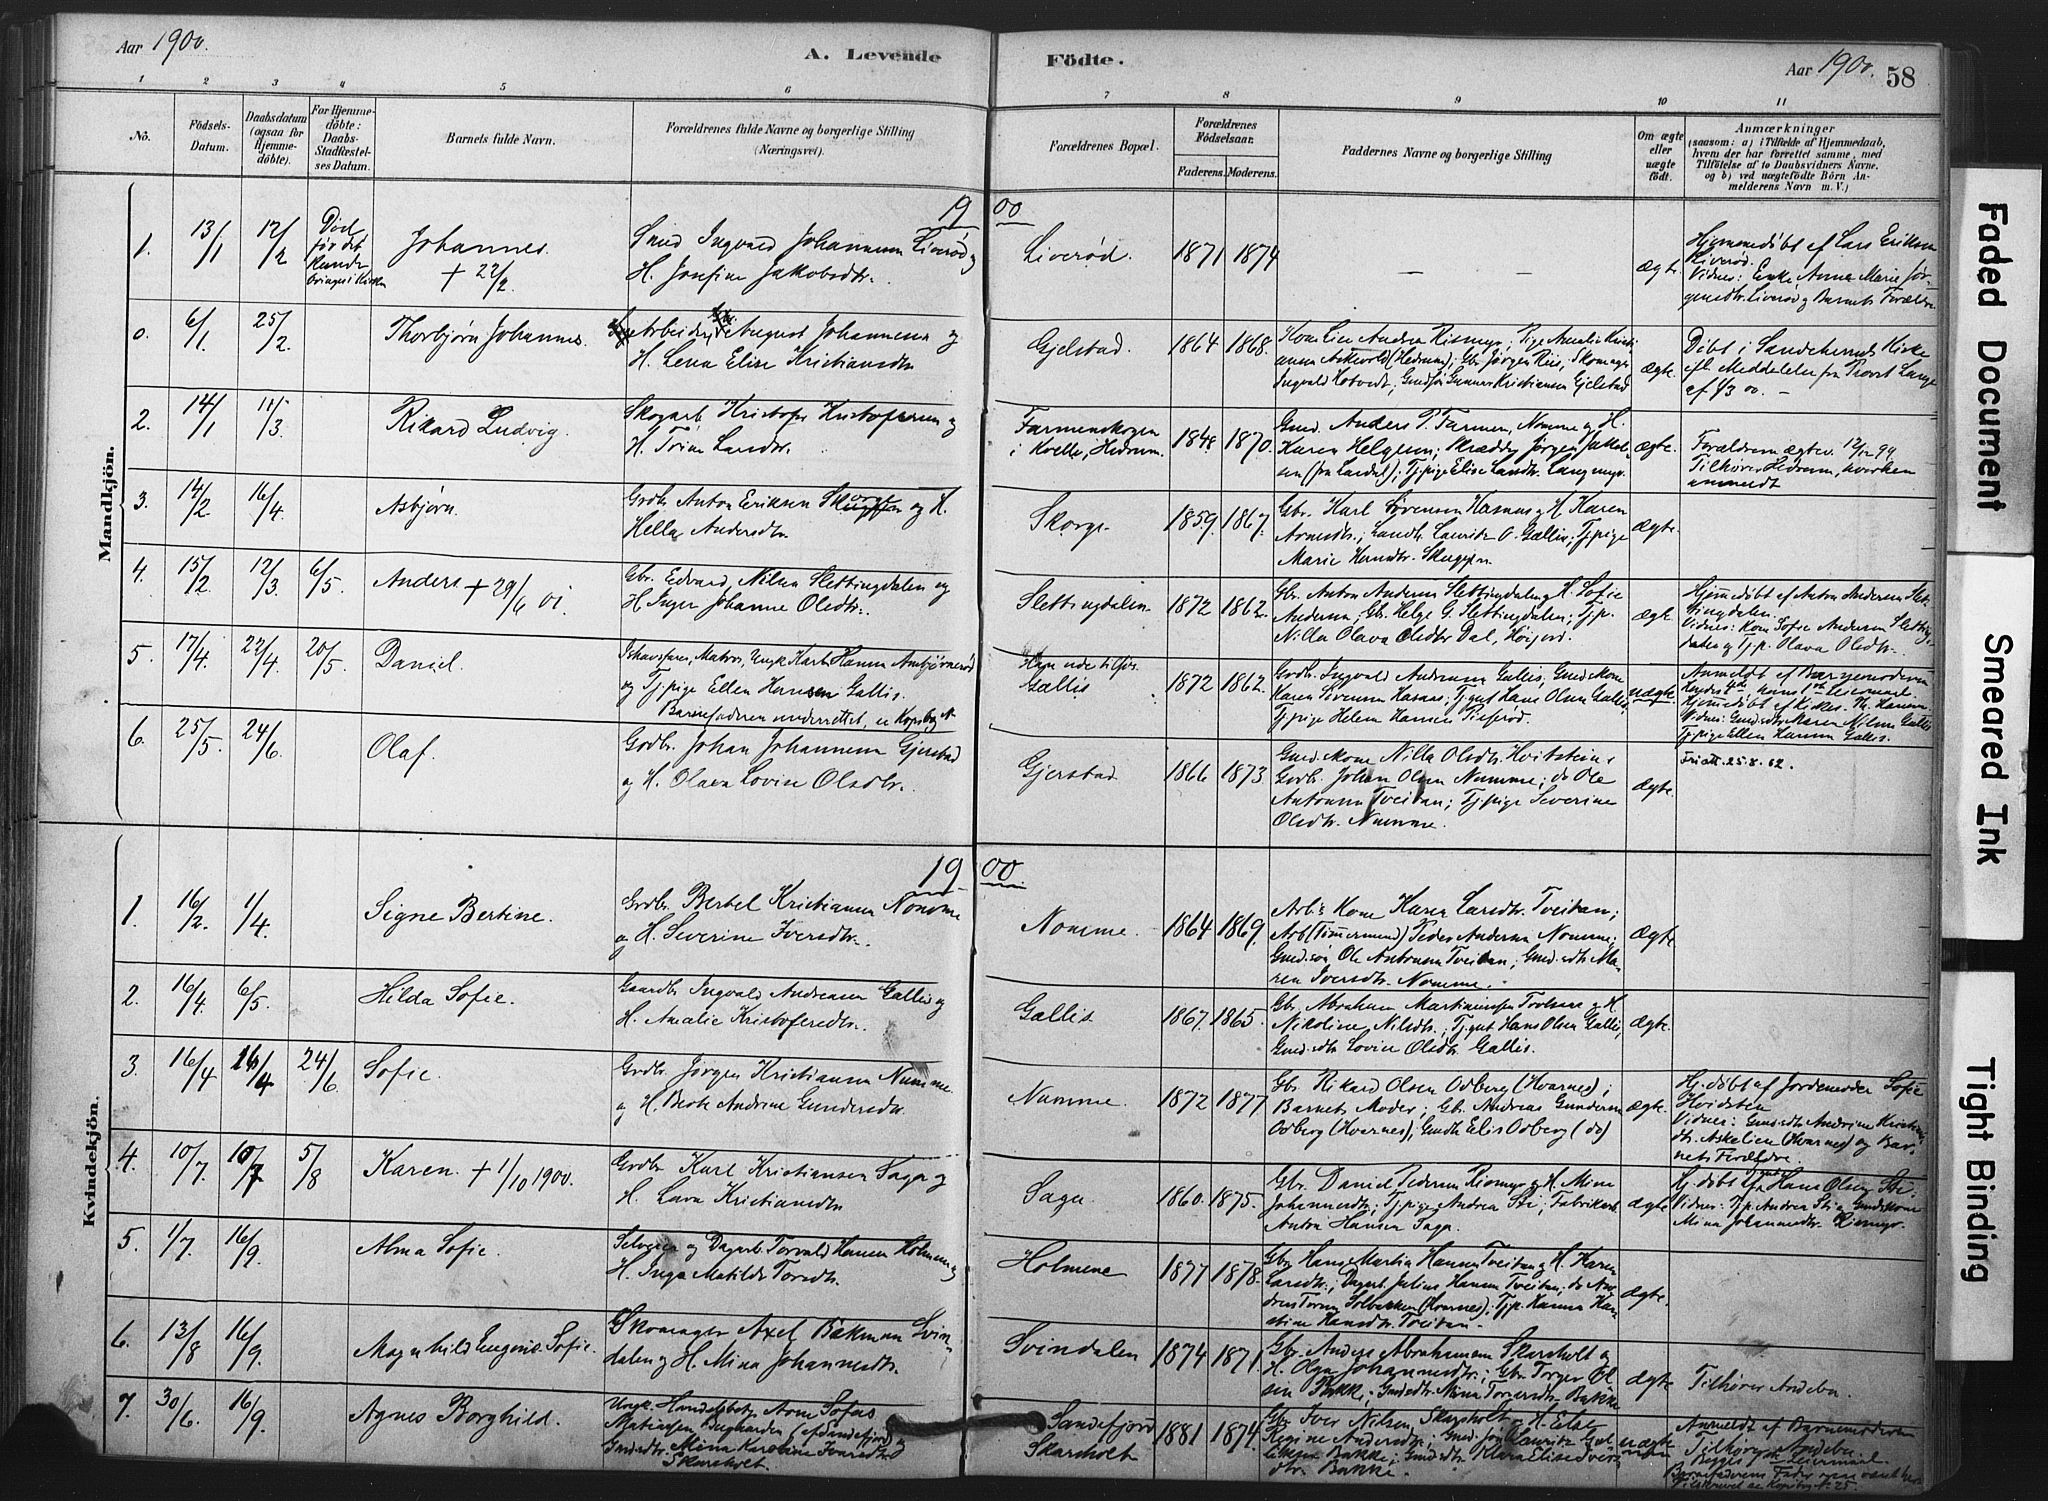 Aar 1900.
A. Levende
Födte.
Aar 1900.
58
1 2 3 4 5 6 7 8 9 10 11
No.
Födsels-
Datum.
Daabsdatum
(ogsaa for
Hjemme-
döbte).
For Hjemme-
döbte:
Daabs-
Stadfæstel-
ses Datum.
Barnets fulde Navn.
Forældrenes fulde Navne og borgerlige Stilling
(Næringsvei).
Forældrenes Bopæl.
Forældrenes
Födselsaar.
Faderens. Moderens.
Faddernes Navne og borgerlige Stilling
Om ægte
eller
uægte
födt.
Anmærkninger
(saasom: a) i Tilfælde af Hjemmedaab,
hvem der har forrettet samme, med
Tilföielse af to Daabsvidners Navne,
og b) ved uægtefödte Börn An-
melderens Navn m. V.)
Mandkjön.
19 00
1. 13/1 12/2
Död
før det
kunde
bringes i Kirken
Johannes.
+ 22/2.
Smed Ingvald Johannesen Liverød og
H. Josefine Jakobsdtr.
Liverød. 1871 1874 — — ægte
Hjemmedöbt af Lars Eriksen
Liverød.
Vidner: Enke Anne Marie Jör-
gensdtr. Liverød og Barnets Forældre.
0. 6/1 25/2
Thorbjørn Johannes.
August Johannesen og
H. Lena Elise Kristiansdtr
Gjelstad. 1864 1868.
ægte.
Döbt i Sandeherreds Kirke
efter Meddelelse fra Provst Lange
af 9/3 00. —
2. 14/1 11/3
Rikard Ludvig.
Skogarb. Kristofer Kristofersen og
H. Trine Larsdtr.
Farmenskogen
i Kvelle, Hedrum. 1848. 1870.
Gmd. Anders P. Farmen, Nomme og H.
Karen Helgesen; Skrædder Jørgen Jakob-
sen (fra Lardal); Tj.pige Elise Larsdtr. Langmyr.
ægte.
Forældrene ægtev. 12/12 99.
Tilhører Hedrum, hvorhen
anmeldt
3. 14/2 16/4.
Asbjørn.
Grdbr. Anton Eriksen Skorge og H.
Hella Andersdtr.
Skorge 1859. 1867.
Gbr. Karl Sørensen Hasaas og H. Karen
Arnesdtr.; Landh. Lauritz O. Gallis; Tj.pige
Marie Hansdtr. Skuggen.
ægte.
4. 15/2 12/3 6/5
Anders + 29/6 01.
Gbr. Edvard Nilsen Slettingdalen og
H. Inger Johanne Olsdtr.
Slettingdalen 1872 1862.
Gbr. Anton Andersen Slettingdalen og H. Sofie
Andersen; Gbr. Helge G. Slettingdalen; Tj.p.
Nilla Olava Olsdtr Dal, Höijord.
ægte
Hjemmedöbt af Anton Andersen Slet-
tingdalen.
Vidner: Kone Sofie Andersen Sletting-
dalen og Tj.p. Olava Olsdtr.
5. 17/4. 22/4 20/5
Daniel.
Ishavsfarer, Matros, Ungk. Karl Hansen Ambjørnerød
og Tj.pige Ellen Hansen Gallis.
Barnefaderen underrettet, se Kopibog N.
Gallis 1872 1862.
Grdb. Ingvald Andresen Gallis; Gmd.kone
Karen Severine Hasaas; Tj.gut Hans Olsen Gallis;
Tj.pige Helene Hansen
uægte.
Anmeldt af Barnemoderen
Hjemmedöbt af Kirkes. Th. Hansen.
Vidner: Gmd.sdtr. Karen Nilsen Gallis
Tj.pige Ellen Hansen Gallis.
6. 25/5. 24/6.
Olaf.
Grdbr. Johan Johannesen Gjerstad
og H. Olava Lovise Olsdtr.
Gjerstad. 1866 1873.
Gmd.skone Nilla Olsdtr. Hvitstein;
Grdb. Johan Olsen Nomme; do Ole
Antonsen Tveitan; Tj.pige Severine
Olsdtr. Nomme.
ægte.
Fri att. 25.8.62.
Kvindekjön.
19 00
1. 16/2. 1/4.
Signe Bertine.
Grdbr. Bertel Kristiansen Nomme
og H. Severine Iversdtr.
Nomme. 1864 1869.
Arb.s Kone Karen Larsdtr. Tveitan;
Arb. (Tømmermand) Peder Andersen Nomme;
Gmd.søn Ole Antonsen Tveitan; Gmd.sdtr. Ma-
ren Iversdtr. Nomme.
ægte
2. 16/4. 6/5.
Hilda Sofie.
Gaardbr. Ingvald Andreasen Gallis og
H. Amalie Kristofersdtr.
Gallis. 1867. 1865.
Gbr. Abraham Martinussen Tolsrød og H.
Nikoline Nilsdtr.; Tj.gut Hans Olsen Gallis;
Gmd.sdtr Lovise Olsdtr. Gallis.
ægte.
3. 16/4 16/4 24/6
Sofie.
Grdbr. Jørgen Kristiansen Nomme
og H. Berte Andrine Gundersdtr.
Nomme. 1872 1877.
Gbr. Rikard Olsen Odberg (Hvarnes);
Barnets Moder; Gbr. Andreas Gundersen
Odberg (Hvarnes); Gmdtr Elis Odberg (do)
ægte.
Hj.döbt af Jordemoder Sofie
Hvidsten
Vidner: Gmd.sdtr Andrine Kristians-
dtr. Askelien (Hvarnes) og Bar-
nets Forældre.
4. 10/7. 10/7 5/8
Karen. + 1/10 1900.
Grdbr. Karl Kristiansen Saga og
H. Lava Kristiansdtr
Saga 1860. 1875.
Gbr. Daniel Pedersen Riomyr og H. Mina
Johannesdtr; Tj.pige Andrea Sti; Fabrikarb.
Anton Hansen Saga.
ægte
Hj.döbt af Hans Olsen Sti.
Vidner: Tj.p. Andrea Sti og Gmd.skone
Mina Johannesdtr. Riomyr.
5. 1/7. 16/9.
Alma Sofie.
Selveier og Dagarb. Torvald Hansen Holmene og
H. Inga Matilde Toresdtr.
Holmene 1877 1878.
Gbr. Hans Martin Hansen Tveitan og H. Karen
Larsdtr.; Dagarb. Julius Hansen Tveitan; do An-
dreas Toresen Solbakken (Hvarnes); Tj.p. Hanna Kri-
stine Hansdtr. Tveitan.
ægte.
6. 13/8 16/9.
Magnhild Eugenie Sofie.
Skomager Axel Bakman Svin
dalen og H. Mina Johannesdtr.
Svindalen 1874 1871.
Gbr. Anders Abrahamsen Skarsholt og
H. Olga Johannesdtr.; Gbr. Torger Ol-
sen Bakke; Gmd.sdtr. Mina Torgersdtr Bakke
ægte
Tilhører Andebu.
7. 30/6. 16/9.
Agnes Borghild.
Ungk. Handelsbetj. Arne Sofus
Matiasen (af Sandefjord) og
Gmd.sdtr. Mina Karoline
Skarsholt.
Sandefjord
Skarsholt 1881 1874.
Gbr. Iver Nilsen Skarsholt og H. Else
Regine Andersdtr.; Gmd.søn Lauritz
Bakke; Gmd.sdtr. Klara Elise Ivers-
dtr. Bakke.
uægte
Anmeldt af Barnemoderen
Tilhører Andebu.
Begges 1ste Leiermaal.
Faded Document
Smeared Ink
Tight Binding